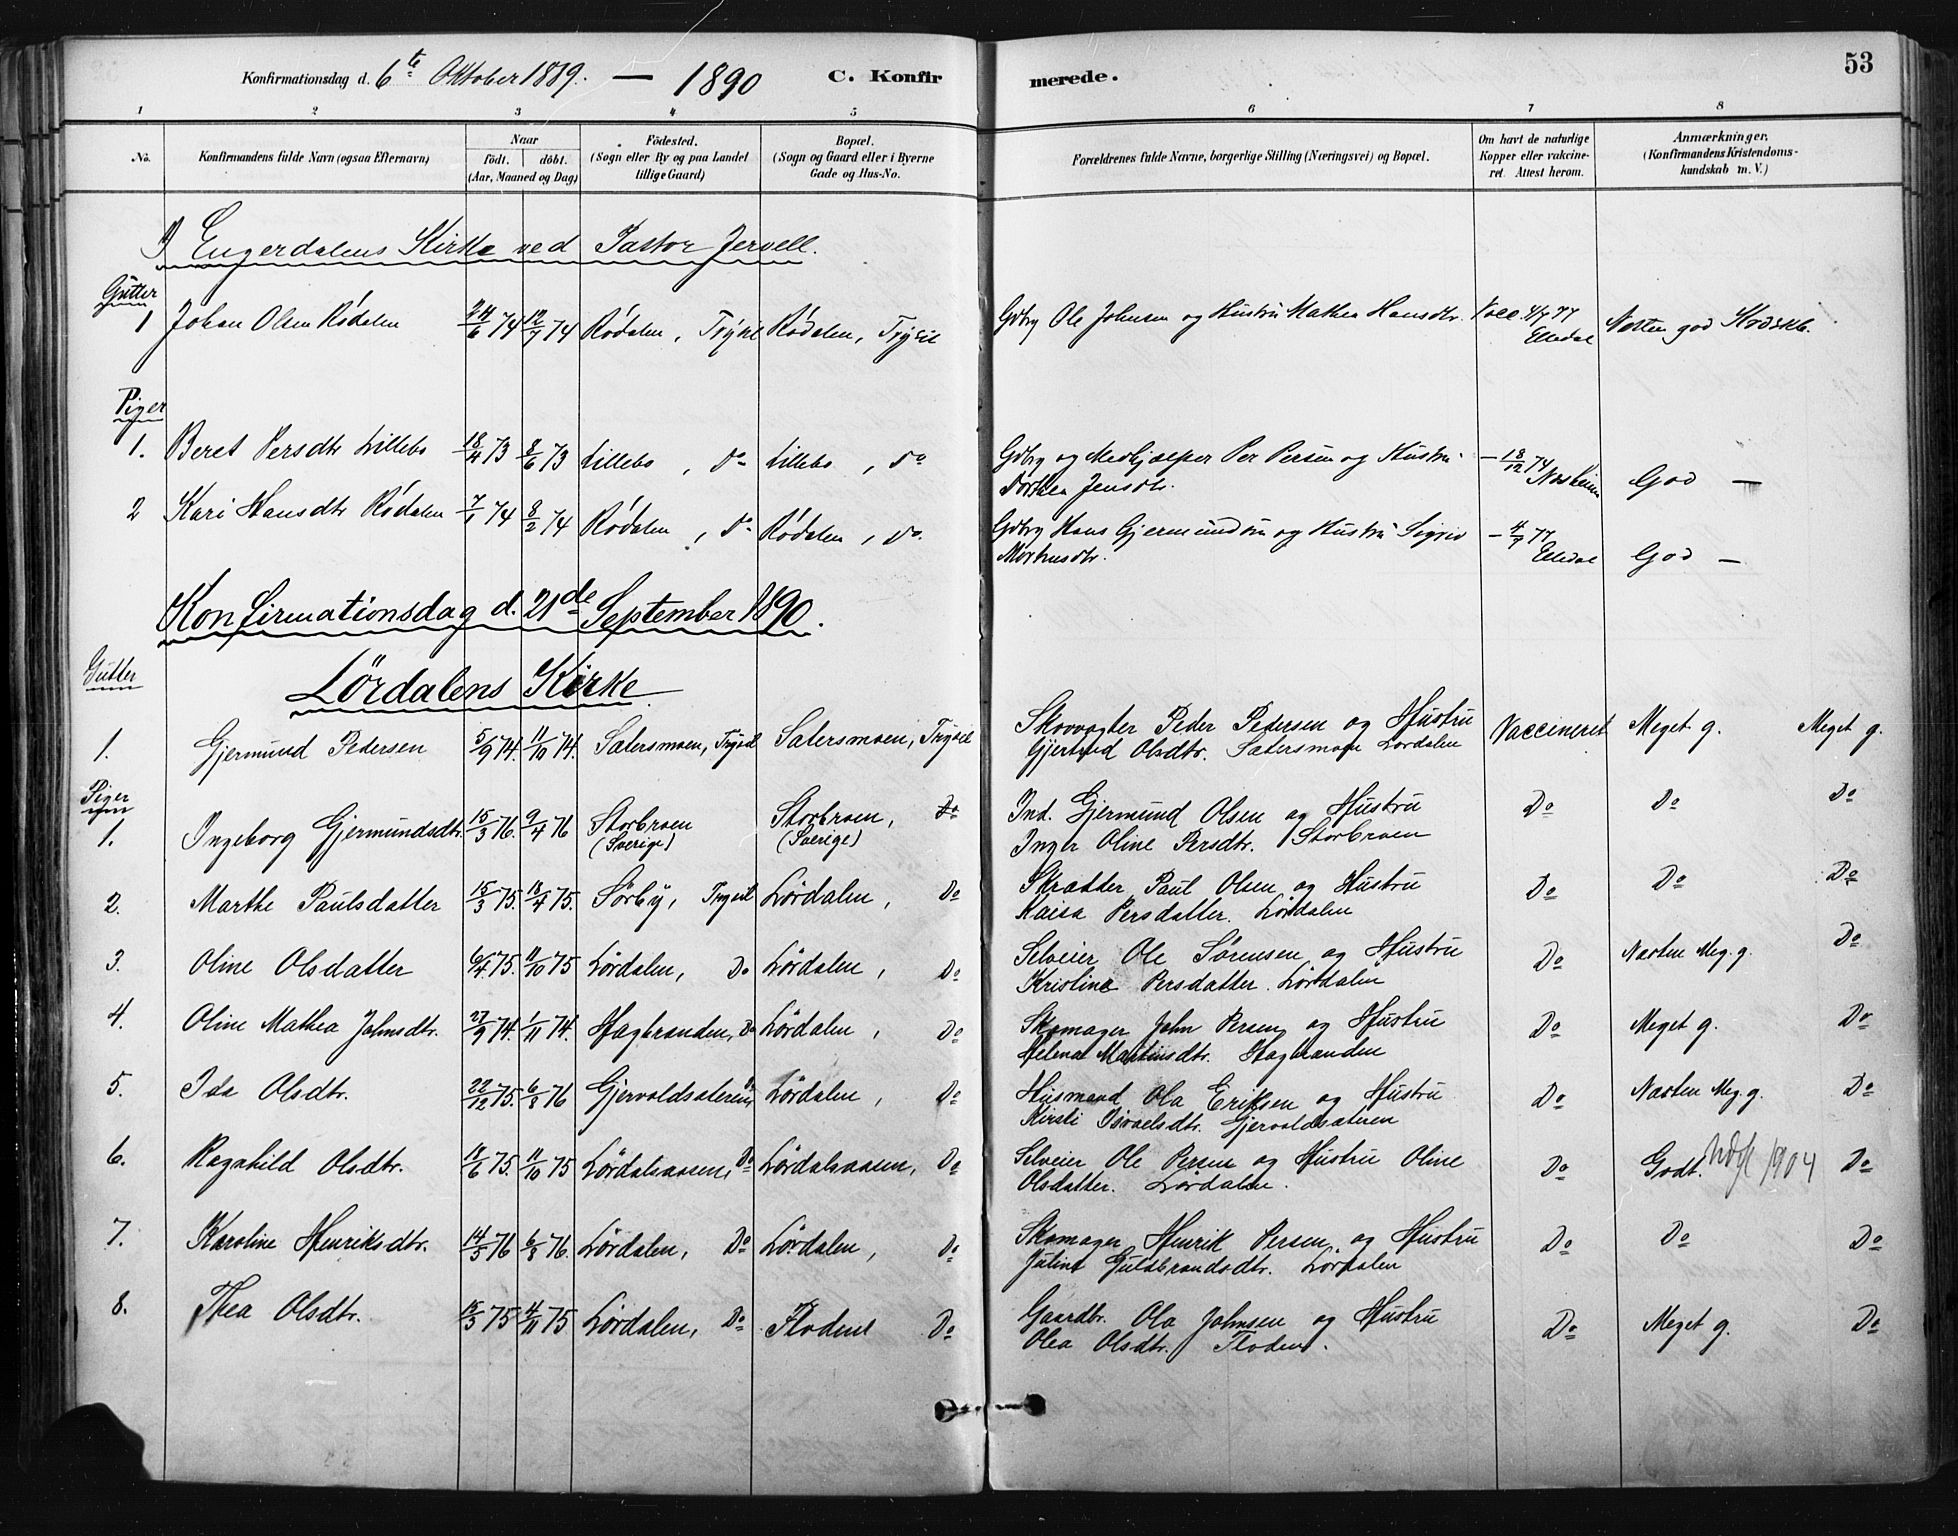 Konfirmationsdag d. 6te Oktober 1889. — 1890 C. Konfir merede. 53
1 2 3 4 5 6 7 8
No. Konfirmandens fulde Navn (ogsaa Efternavn) Naar födt. döbt. (Aar, Maaned og Dag) Födested. (Sogn eller By og paa Landet tillige Gaard) Bopæl. (Sogn og Gaard eller i Byerne Gade og Hus-No. Forældrenes fulde Navne, borgerlige Stilling (Næringsvei) og Bopæl. Om havt de naturlige Kopper eller vakcineret. Attest herom. Anmærkninger. (Konfirmandens Kristendomskundskab m. V.)
I Engerdalens Kirke ved Pastor Jervell.
Gutter
1 Johan Olsen Rødalen 24/6 74 12/7 74 Rødalen, Trysil Rødalen, Trysil Gdbr Ole Johnsen og Hustru Mathea Hansdtr. Vacc 4/7 77 Elledal Næsten god Krdskb.
Piger
1. Beret Persdtr Lillebo 18/4 73 8/6 73 Lillebo, Do Lillebo, Do Gdbr og Medhjælper Per Persen og Hustru Dorthea Jensdtr. — 18/12 74 Nosheim God —
2 Kari Hansdtr Rødalen 7/1 74 8/2 74 Rødalen, Do Rødalen, Do. Gdbr Hans Gjermundsen og Hustru Sigrid Morthensdtr. — 4/7 77 Elledal God —
Konfirmationsdag d. 21de September 1890.
Gutter
Lördalens Kirke
1. Gjermund Pedersen 5/9 74. 11/10 74. Sætersmoen, Trysil Sætersmoen, Trysil Skovvogter Peder Pedersen og Hustru Gjertrud Olsdtr. Sætersmoen Lördalen Vaccineret Meget g. Meget g.
Piger
1. Ingeborg Gjermundsdtr. 15/3 76. 9/4 76 Storbroen (Sverige) Storbroen, (Sverige) Do Ind. Gjermund Olsen og Hustru Inger Oline Persdtr. Storbroen Do Do Do
2. Marthe Paulsdatter 15/3 75. 18/4 75. Sørby, Trysil Lördalen, Do Skrædder Paul Olsen og Hustru Kaisa Persdatter. Lördalen Do Do Do
3. Oline Olsdatter 6/4 75. 11/10 75 Lördalen, Do Lördalen, Do Selveier Ole Sørensen og Hustru Kristine Persdatter. Lördalen Do Næsten Meg. g. Do
4. Oline Mathea Johnsdtr. 27/9 74. 1/11 74. Hagbranden, Do Lördalen, Do Skomager John Persen og Hustru Helena Martinsdtr. Hagbranden Do Meget g. Do
5. Ida Olsdtr. 22/12 75. 6/8 76 Gjervoldsæteren, Do Lördalen, Do Husmand Ola Eriksen og Hustru Kirsti Isvaelsdtr. Gjervoldsæteren Do Næsten Meg. g. Do
6. Ragnhild Olsdtr. 18/6 75. 11/10 75 Lördalsaasen, Do Lördalsaasen, Do Selveier Ole Persen og Hustru Oline Olsdatter. Lördalen. Do Godt. Udfl 1904 Do
7. Karoline Henriksdtr. 14/5 76 6/8 76. Lördalen, Do Lördalen, Do Skomager Henrik Persen og Hustru Juline Guldbrandsdtr. Lördalen Do Do Do
8. Thea Olsdtr. 15/3 75 4/11 75 Lördalen, Do Floden Do Gaardbr. Ola Johnsen og Hustru Olea Olsdtr. Floden. Do Meget g. Do